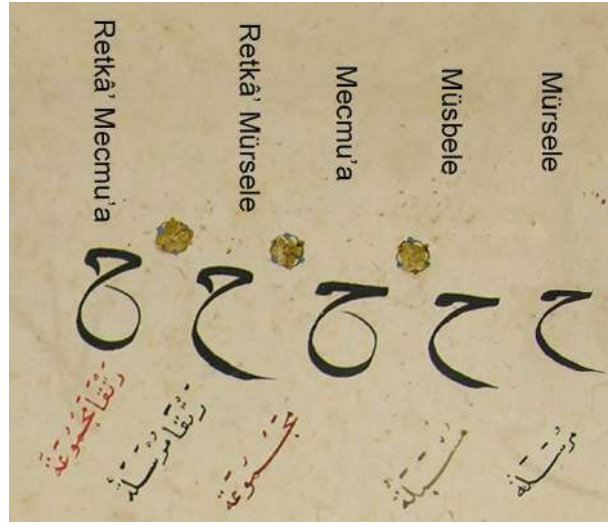 Mürsele
Müsbele
Mecmu'a
Retkâ' Mürsele
Retkâ' Mecmu'a
ح ح ح ح ح
مُرْسَلَة
مُسْبَلَة
مَجْمُوعَة
رَتْقَا مُرْسَلَة
رَتْقَا مَجْمُوعَة